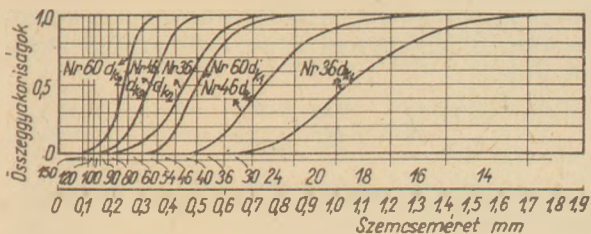 Összeggyakoriságok
1,0
0,5
0
Nr 60 dk3
Nr 46 dk3
Nr 36 dk2
Nr 60 dk1
Nr 46 dk1
Nr 36 dk1
150 120 100 90 80 60 54 46 40 36 30 24 20 18 16 14
0 0,1 0,2 0,3 0,4 0,5 0,6 0,7 0,8 0,9 1,0 1,1 1,2 1,3 1,4 1,5 1,6 1,7 1,8 1,9
Szemcseméret mm